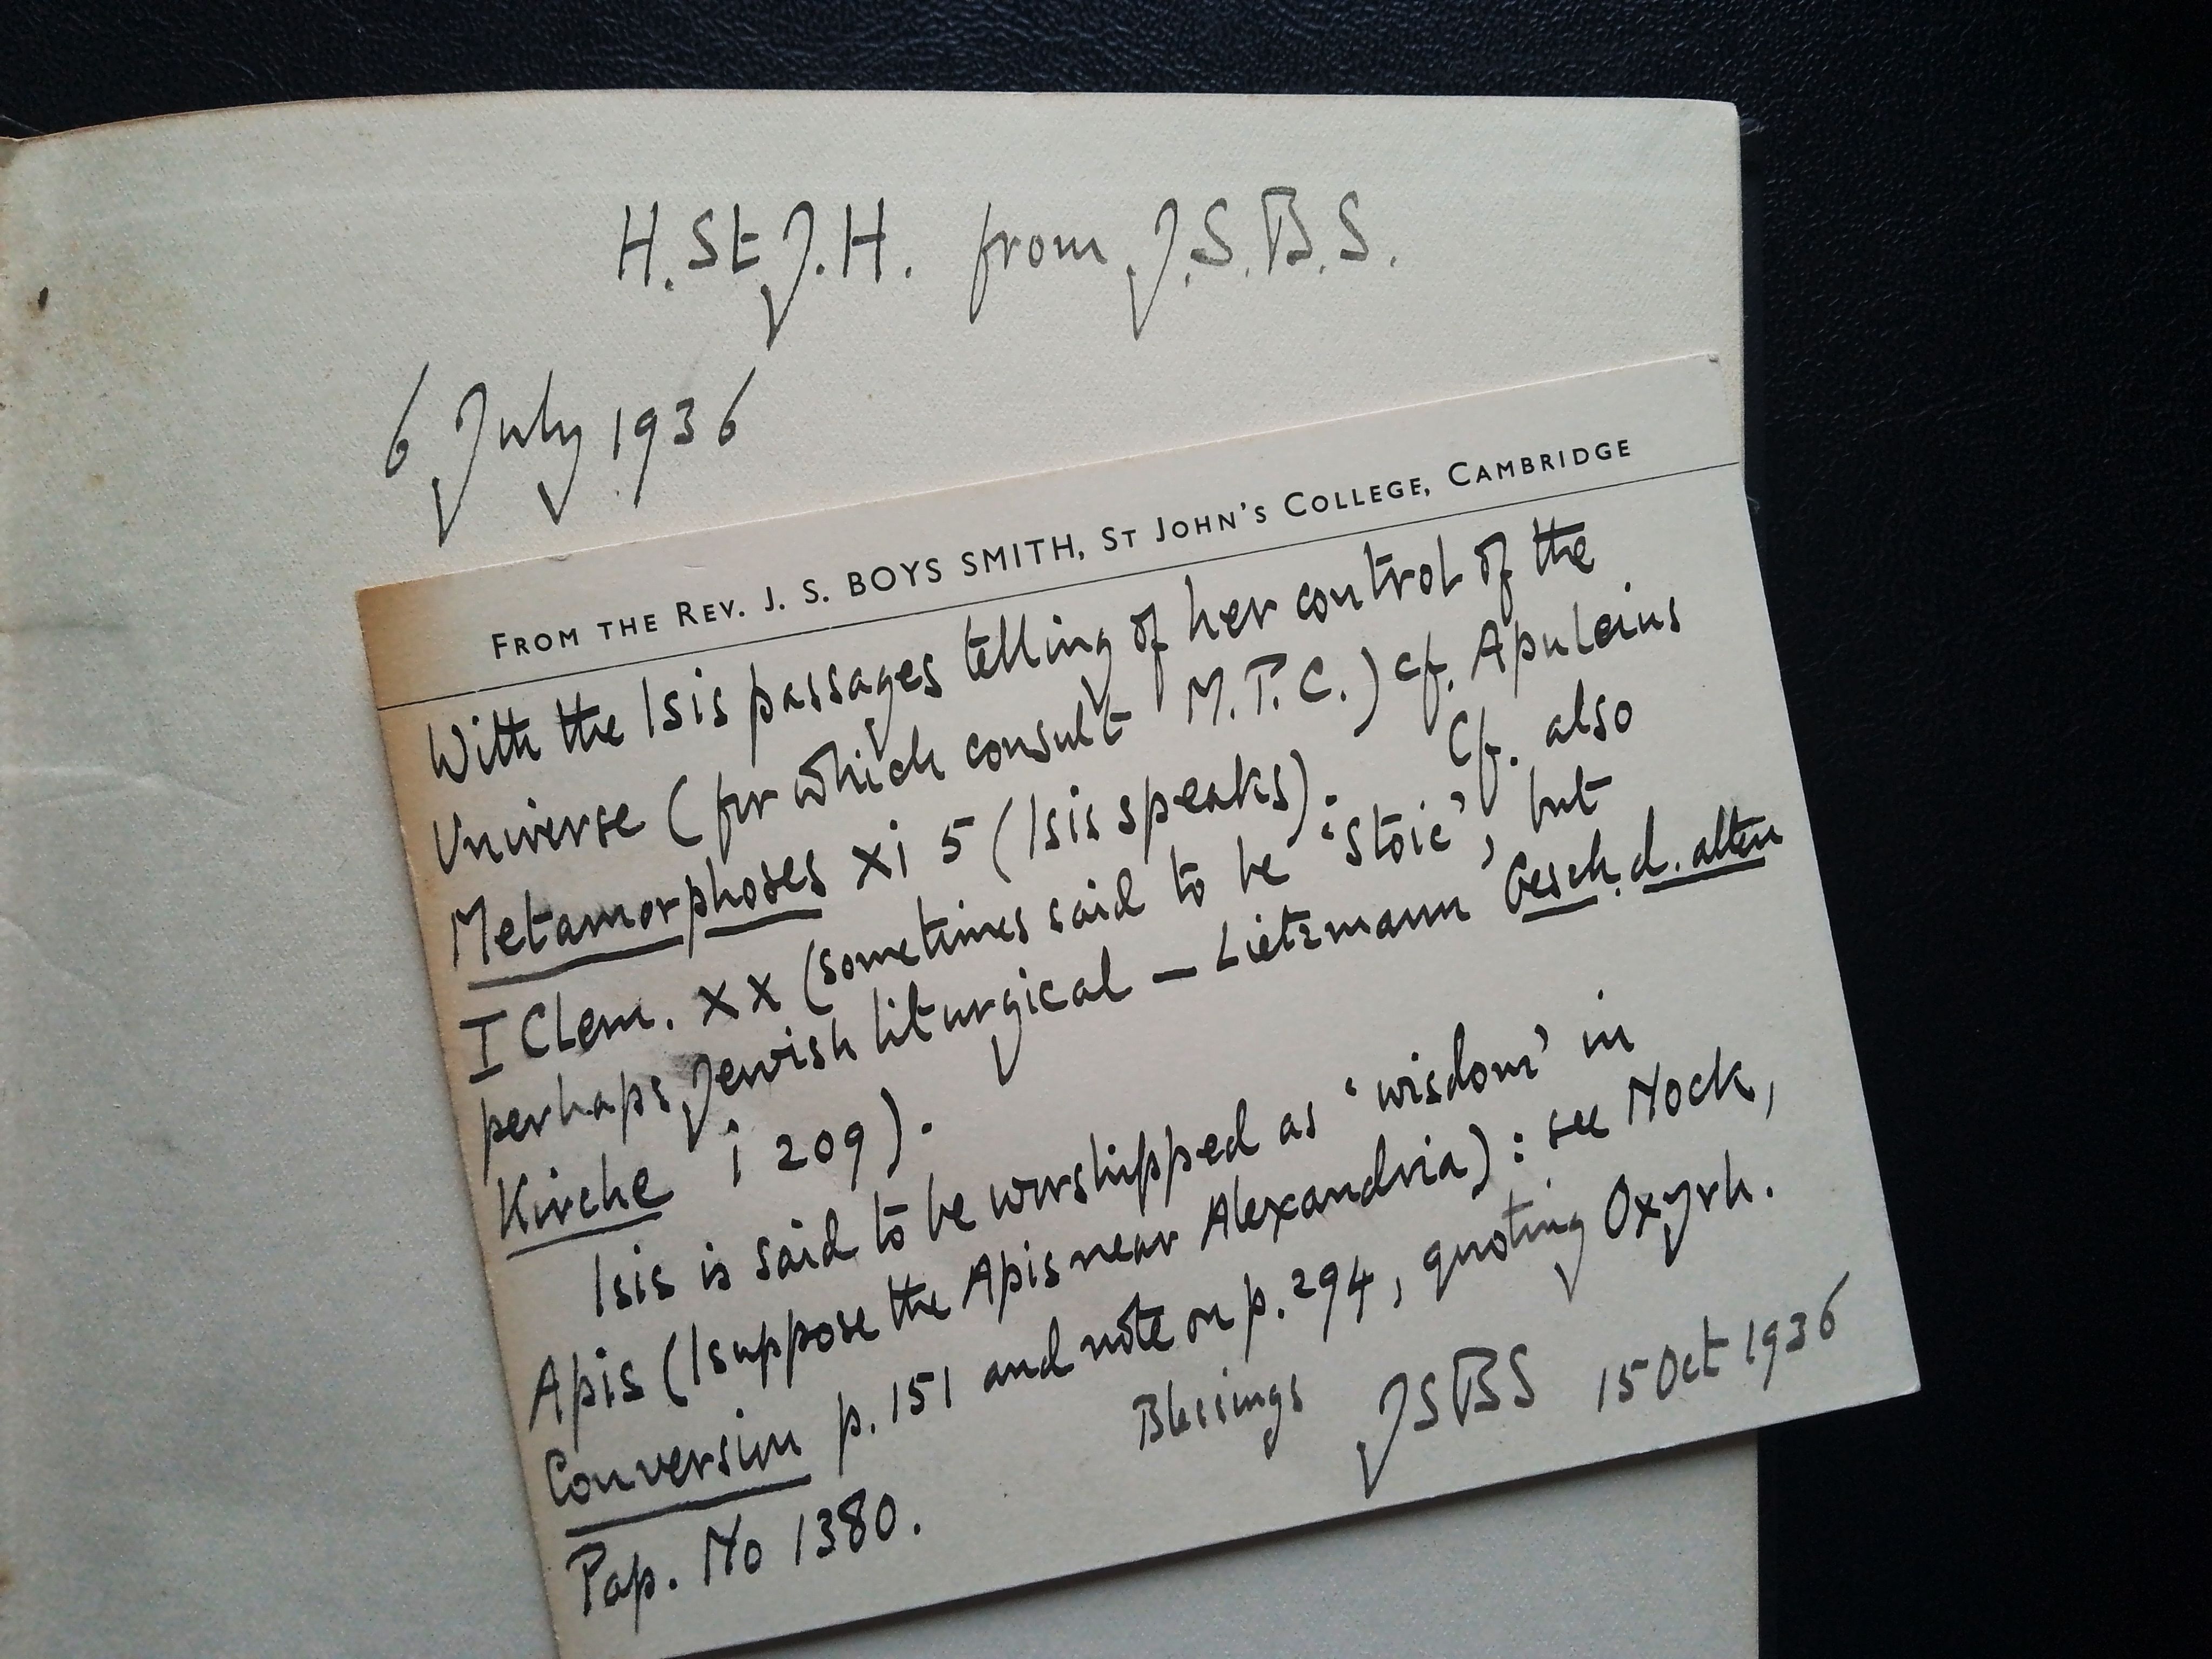 H. St J. H. from J. S. B. S.
6 July 1936
FROM THE REV. J. S. BOYS SMITH, ST JOHN'S COLLEGE, CAMBRIDGE
With the Isis passages telling of her control of the
Universe (for which consult M.P.C.) cf. Apuleius
Metamorphoses xi 5 (Isis speaks). Cf. also
I Clem. xx (sometimes said to be 'Stoic', but
perhaps Jewish liturgical – Lietzmann Gesch. d. alten
Kirche i 209).
Isis is said to be worshipped as 'wisdom' in
Apis (I suppose the Apis near Alexandria): see Nock,
Conversion p. 151 and note on p. 294, quoting Oxyrh.
Pap. No 1380.
Blessings JSBS 15 Oct 1936